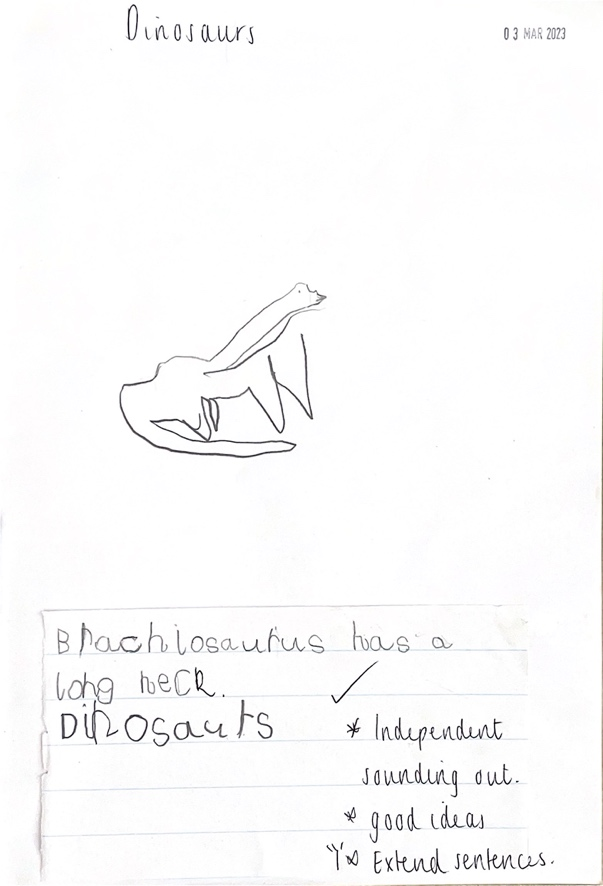 Dinosaurs
03 MAR 2023
Brachiosaurus has a
long neck.
Dinosaurs
✓
* Independent
sounding out.
* good ideas
* Extend sentences.